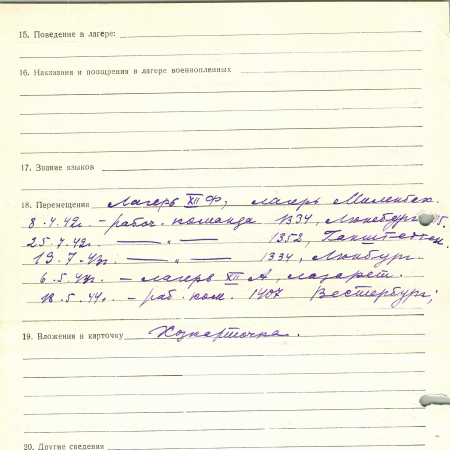 15. Поведение в лагере:
16. Наказания и поощрения в лагере военнопленных
17. Знание языков
18. Перемещения Лагерь XII Ф, лагерь
8.4.42г. – рабоч. команда 1334, Люнебург
25.7.42г. — " — 1352,
19.7.43г. — " — 1334, Люнбург.
6.5.44г. – лагерь XII А, лазарет.
18.5.44г. – раб. ком. 1407 Вестербург;
19. Вложения в карточку Хозкарточка.
20. Другие сведения